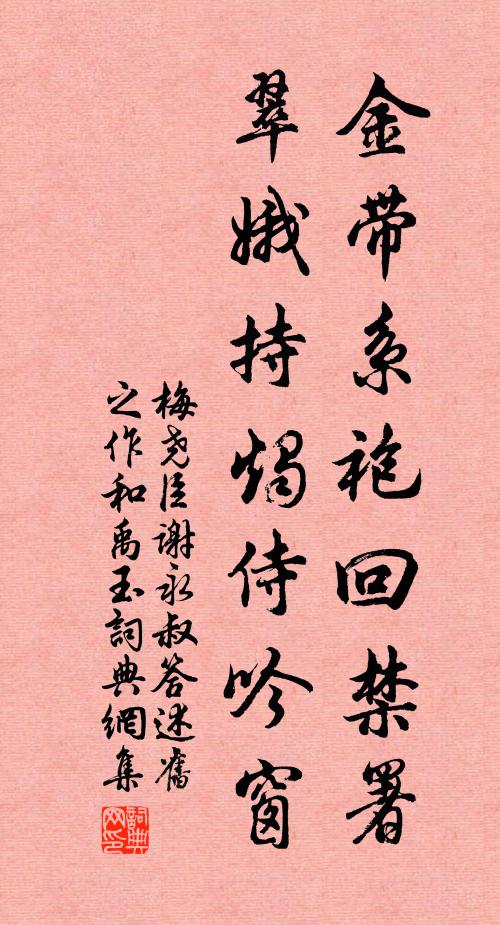 金带系袍回禁署
翠娥持烛侍吟窗
梅尧臣谢永叔答述旧
之作和禹玉詞典網集
詞典网印